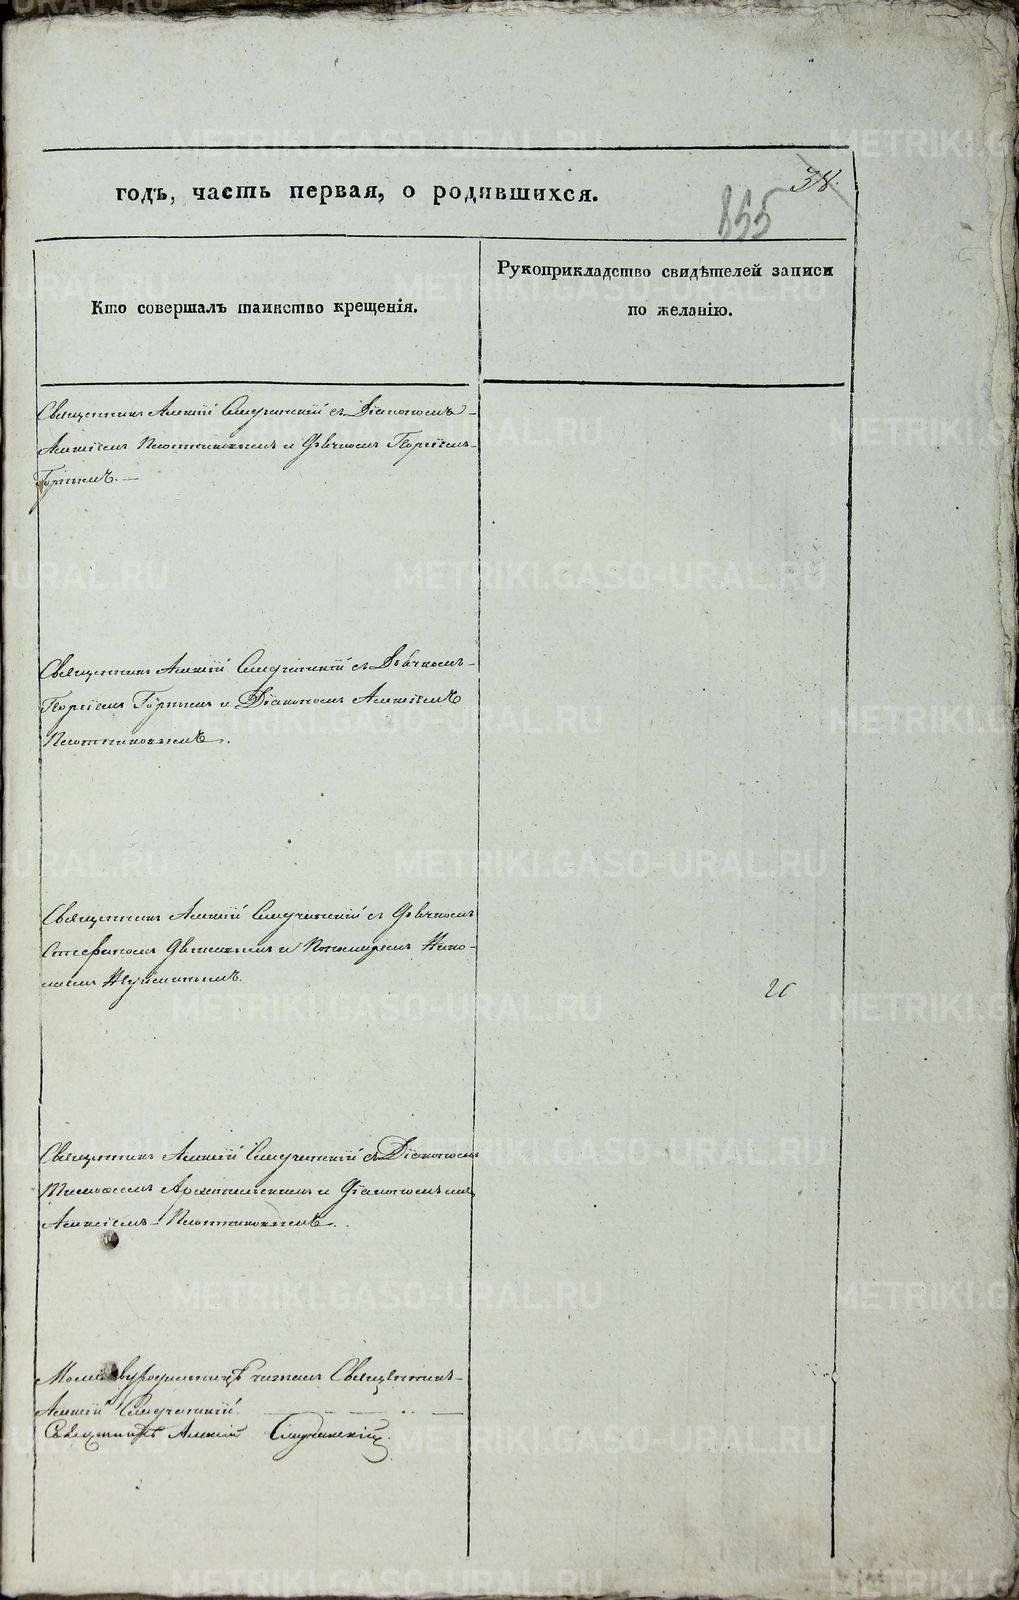 годъ, часть первая, о родившихся.
38.
855
Кто совершалъ таинство крещенія.
Рукоприкладство свидѣтелей записи
по желанію.
Священникъ Алексій Случевскій съ Діакономъ
Алексіемъ Плотниковымъ и Дьячкомъ Георгіемъ
Горнымъ.
Священникъ Алексій Случевскій съ Дьячкомъ
Георгіемъ Горнымъ и Діакономъ Алексіемъ
Плотниковымъ.
Священникъ Алексій Случевскій съ Дьячкомъ
Стефаномъ и Пономаремъ Нико-
лаемъ
Священникъ Алексій Случевскій съ Діакономъ
и Діакономъ
Алексіемъ Плотниковымъ.
Молитву родительницѣ читалъ Священникъ
Алексій Случевскій.
Священникъ Алексій Случевскій
METRIKI.GASO-URAL.RU